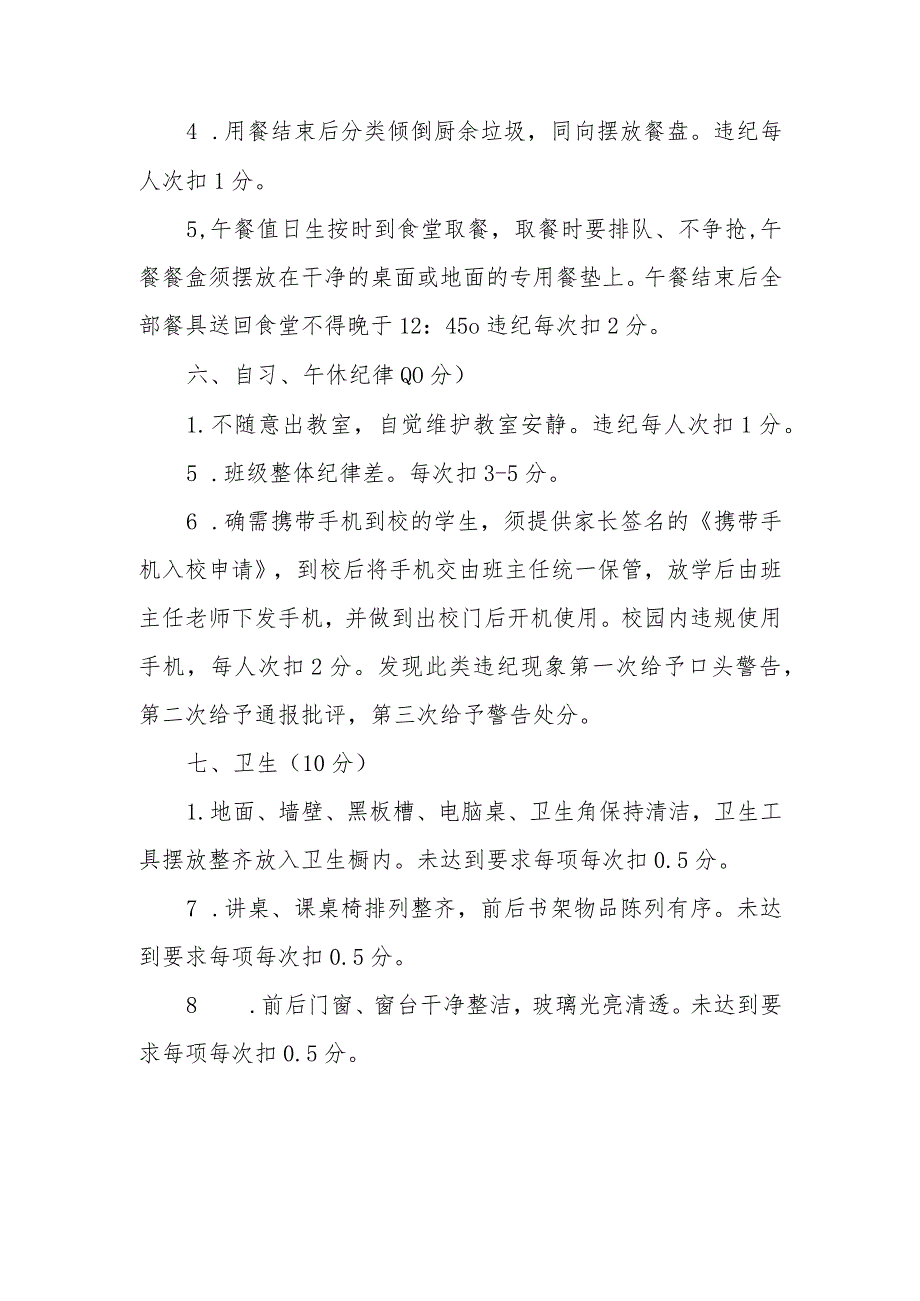 4 .用餐结束后分类倾倒厨余垃圾，同向摆放餐盘。违纪每
人次扣1分。
5,午餐值日生按时到食堂取餐，取餐时要排队、不争抢,午
餐餐盒须摆放在干净的桌面或地面的专用餐垫上。午餐结束后全
部餐具送回食堂不得晚于12：45o违纪每次扣2分。
六、自习、午休纪律QO分）
1.不随意出教室，自觉维护教室安静。违纪每人次扣1分。
5 .班级整体纪律差。每次扣3-5分。
6 .确需携带手机到校的学生，须提供家长签名的《携带手
机入校申请》，到校后将手机交由班主任统一保管，放学后由班
主任老师下发手机，并做到出校门后开机使用。校园内违规使用
手机，每人次扣2分。发现此类违纪现象第一次给予口头警告，
第二次给予通报批评，第三次给予警告处分。
七、卫生（10分）
1.地面、墙壁、黑板槽、电脑桌、卫生角保持清洁，卫生工
具摆放整齐放入卫生橱内。未达到要求每项每次扣0.5分。
7 .讲桌、课桌椅排列整齐，前后书架物品陈列有序。未达
到要求每项每次扣0.5分。
8 .前后门窗、窗台干净整洁，玻璃光亮清透。未达到要
求每项每次扣0.5分。